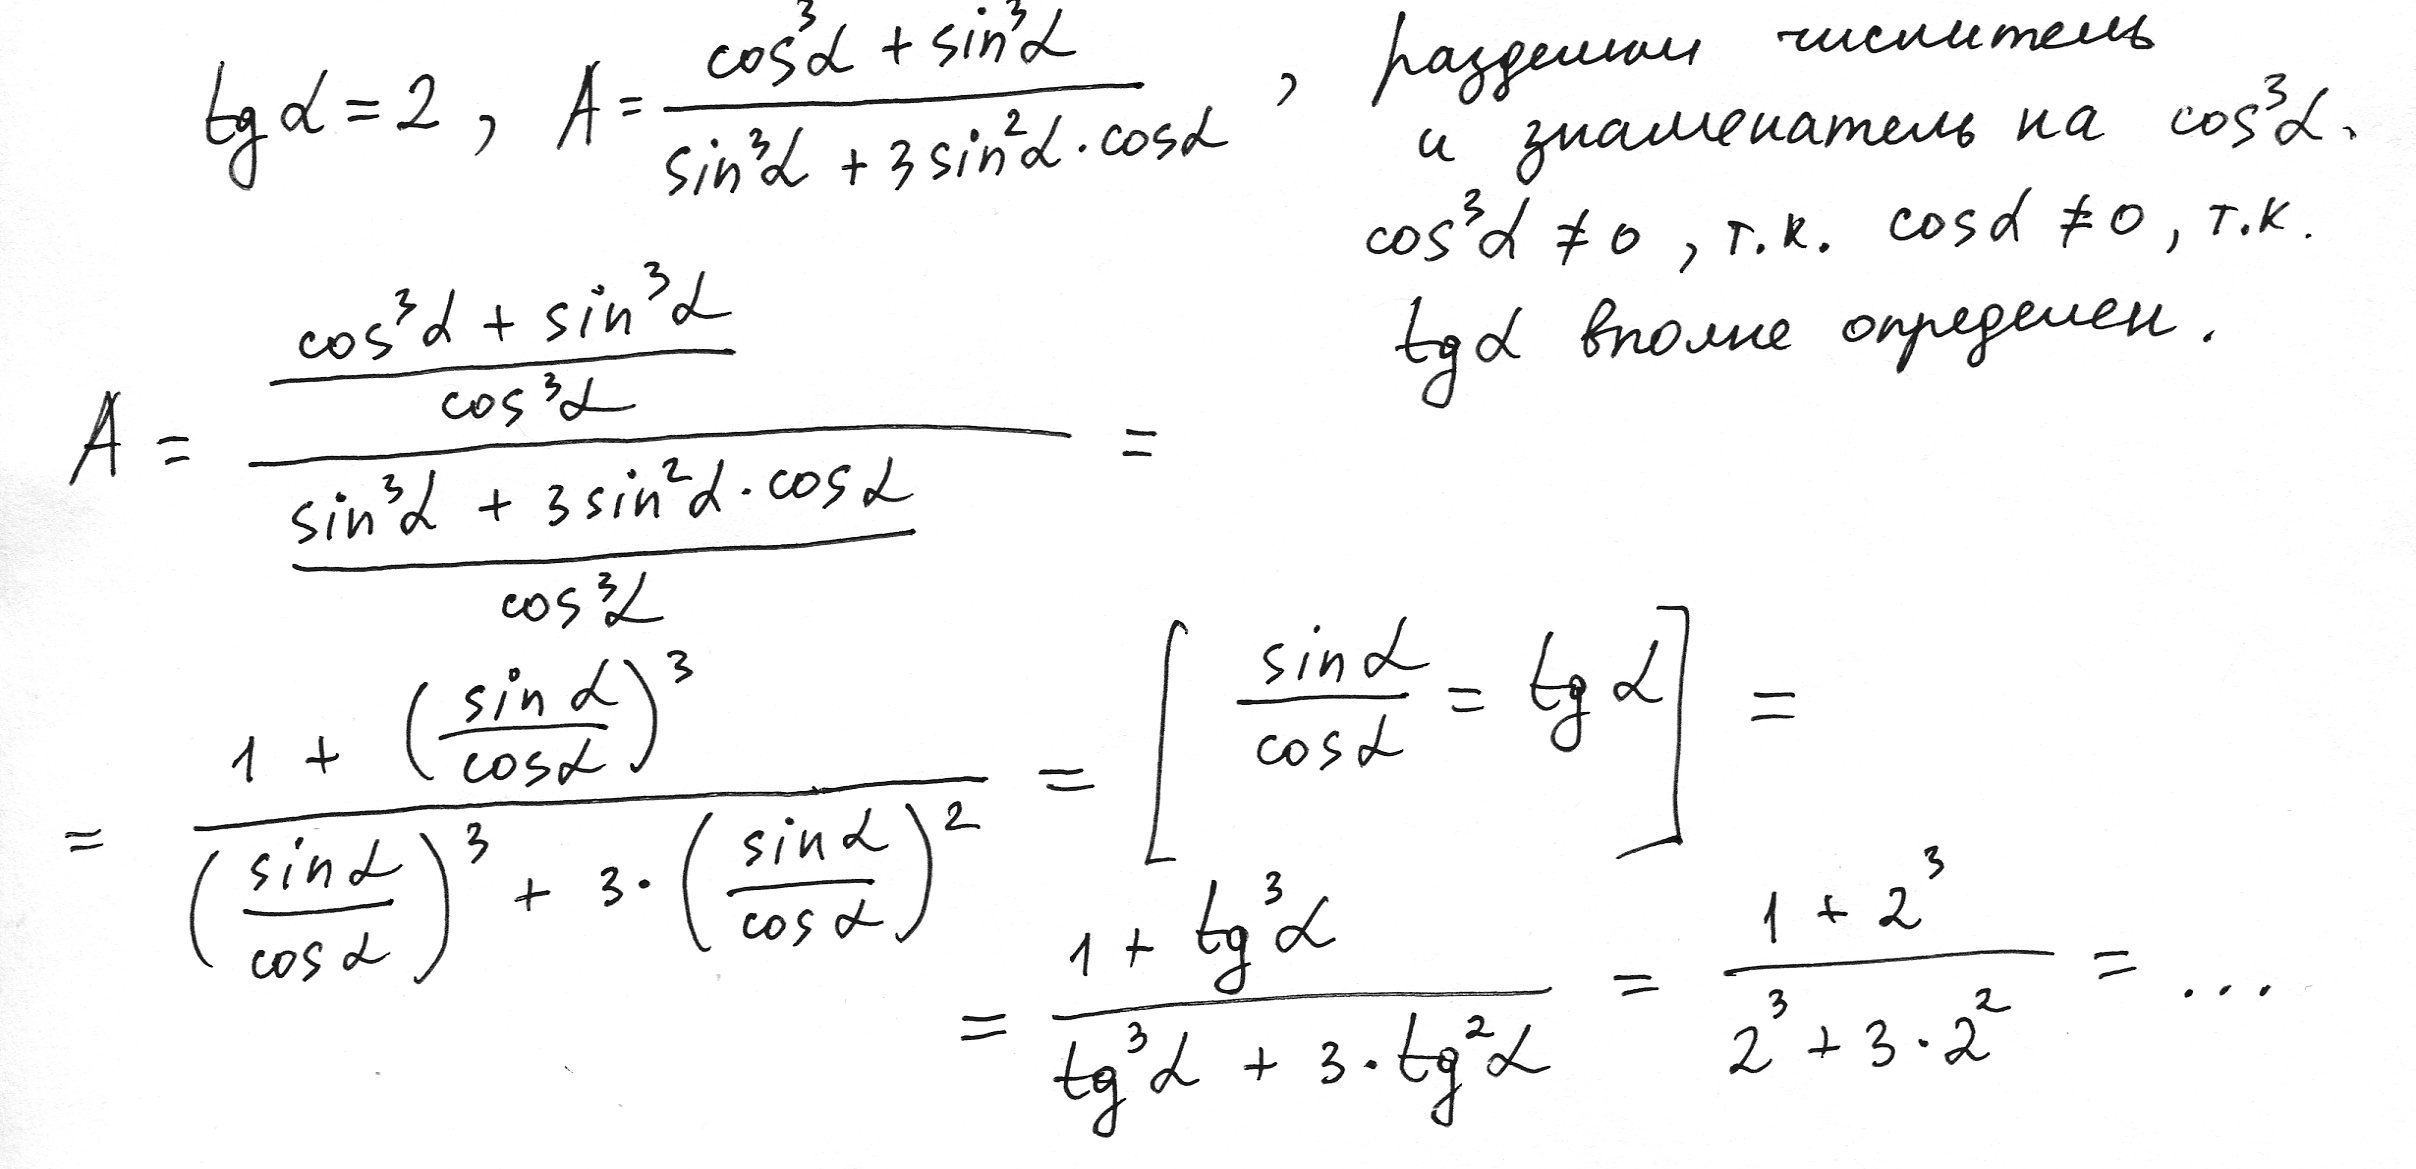 tg α = 2, A = (cos³α + sin³α) / (sin³α + 3 sin²α · cosα), разделим числитель
и знаменатель на cos³α.
cos³α ≠ 0, т.к. cosα ≠ 0, т.к.
tg α вполне определен.
A = ((cos³α + sin³α) / cos³α) / ((sin³α + 3 sin²α · cosα) / cos³α) =
= (1 + (sinα / cosα)³) / ((sinα / cosα)³ + 3 · (sinα / cosα)²) = [sinα / cosα = tg α] =
= (1 + tg³α) / (tg³α + 3 · tg²α) = (1 + 2³) / (2³ + 3 · 2²) = ...